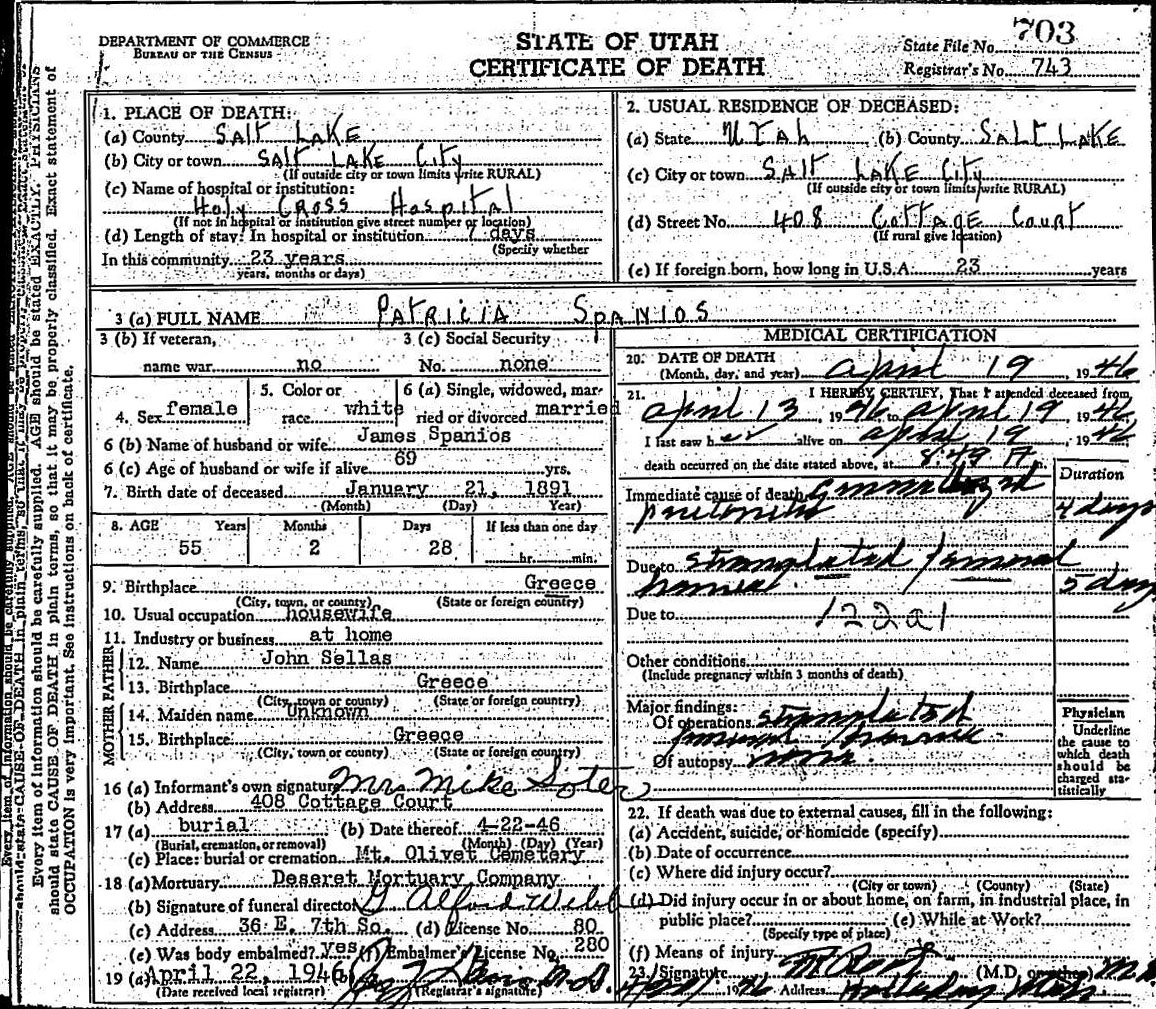 703
DEPARTMENT OF COMMERCE
BUREAU OF THE CENSUS
STATE OF UTAH
CERTIFICATE OF DEATH
State File No.
Registrar's No. 743
Every item of information should be carefully supplied. AGE should be stated EXACTLY. PHYSICIANS
should state CAUSE OF DEATH in plain terms, so that it may be properly classified. Exact statement of
OCCUPATION is very important. See instructions on back of certificate.
1. PLACE OF DEATH:
(a) County SALT LAKE
(b) City or town SALT LAKE CITY
(If outside city or town limits write RURAL)
(c) Name of hospital or institution:
HOLY CROSS HOSPITAL
(If not in hospital or institution give street number or location)
(d) Length of stay: In hospital or institution 7 days
(Specify whether
In this community 23 years
years, months or days)
2. USUAL RESIDENCE OF DECEASED:
(a) State UTAH (b) County SALT LAKE
(c) City or town SALT LAKE CITY
(If outside city or town limits write RURAL)
(d) Street No. 408 COTTAGE COURT
(If rural give location)
(e) If foreign born, how long in U.S.A. 23 years
3 (a) FULL NAME PATRICIA SPANIOS
3 (b) If veteran, 3 (c) Social Security
name war no No. none
4. Sex female 5. Color or race white 6 (a) Single, widowed, married or divorced married
6 (b) Name of husband or wife James Spanios
6 (c) Age of husband or wife if alive 69 yrs.
7. Birth date of deceased January 21, 1891
(Month) (Day) Year)
8. AGE Years Months Days If less than one day
55 2 28 hr. min.
9. Birthplace Greece
(City, town, or county) (State or foreign country)
10. Usual occupation housewife
11. Industry or business at home
FATHER
12. Name John Sellas
13. Birthplace Greece
(City, town or county) (State or foreign country)
MOTHER
14. Maiden name Unknown
15. Birthplace Greece
(City, town or county) (State or foreign country)
16 (a) Informant's own signature Mrs Mike Soter
(b) Address 408 Cottage Court
17 (a) burial (b) Date thereof 4-22-46
(Burial, cremation, or removal) (Month) (Day) (Year)
(c) Place: burial or cremation Mt. Olivet Cemetery
18 (a) Mortuary Deseret Mortuary Company
(b) Signature of funeral director G Alford Webb
(c) Address 36 E. 7th So. (d) License No. 80
(e) Was body embalmed? yes (f) Embalmer's License No. 280
19 (a) April 22, 1946 (b) M.D.
(Date received local registrar) (Registrar's signature)
MEDICAL CERTIFICATION
20. DATE OF DEATH
(Month, day, and year) April 19, 1946
21. I HEREBY CERTIFY, That I attended deceased from
April 13, 1946 to April 19 1946
I last saw her alive on April 19, 1946
death occurred on the date stated above, at 8:49 A m.
Duration
Immediate cause of death Generalized
peritonitis 4 days
Due to strangulated femoral
hernia 5 days
Due to 122a1
Other conditions
(Include pregnancy within 3 months of death)
Major findings:
Of operations strangulated
femoral hernia
Of autopsy none
Physician
Underline
the cause to
which death
should be
charged sta-
tistically
22. If death was due to external causes, fill in the following:
(a) Accident, suicide, or homicide (specify)
(b) Date of occurrence
(c) Where did injury occur?
(City or town) (County) (State)
(d) Did injury occur in or about home, on farm, in industrial place, in
public place? (e) While at Work?
(Specify type of place)
(f) Means of injury
23. Signature (M.D. or other) M.D.
1946 Address